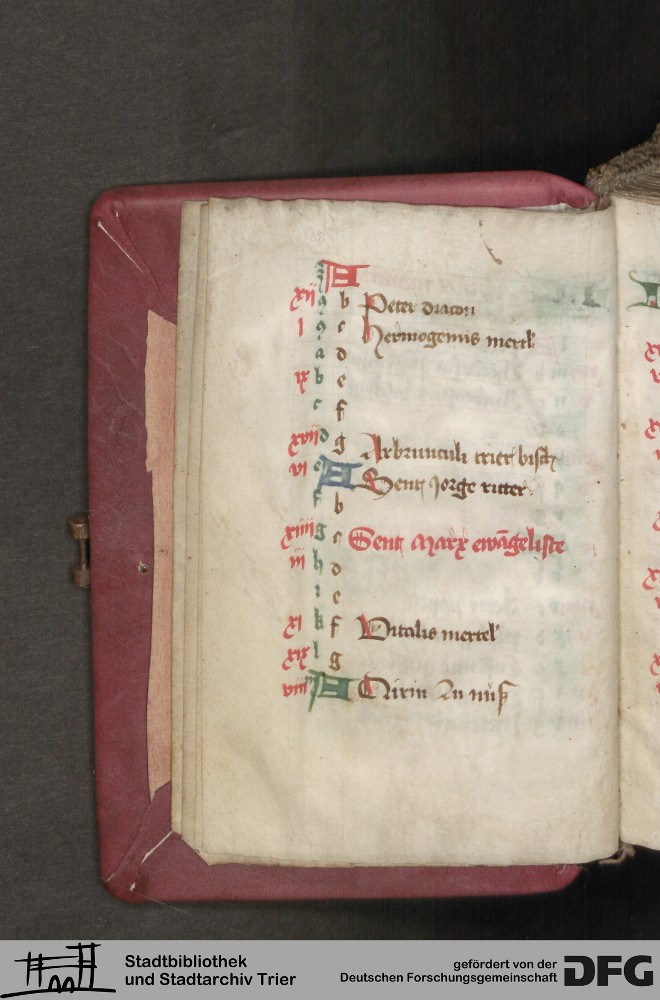 A
xij b Peter diacon
j c Hermogenis mertl
a d
ix b e
c f
xvij d g Arbrunculi trier bisch
vj e A Sent Jorge ritter
f b
xiiij g c Sent Marx ewāgeliste
iij h d
i e
xj k f Vitalis mertel
xix l g
viij A Quirin zu nuß
Stadtbibliothek
und Stadtarchiv Trier
gefördert von der
Deutschen Forschungsgemeinschaft
DFG